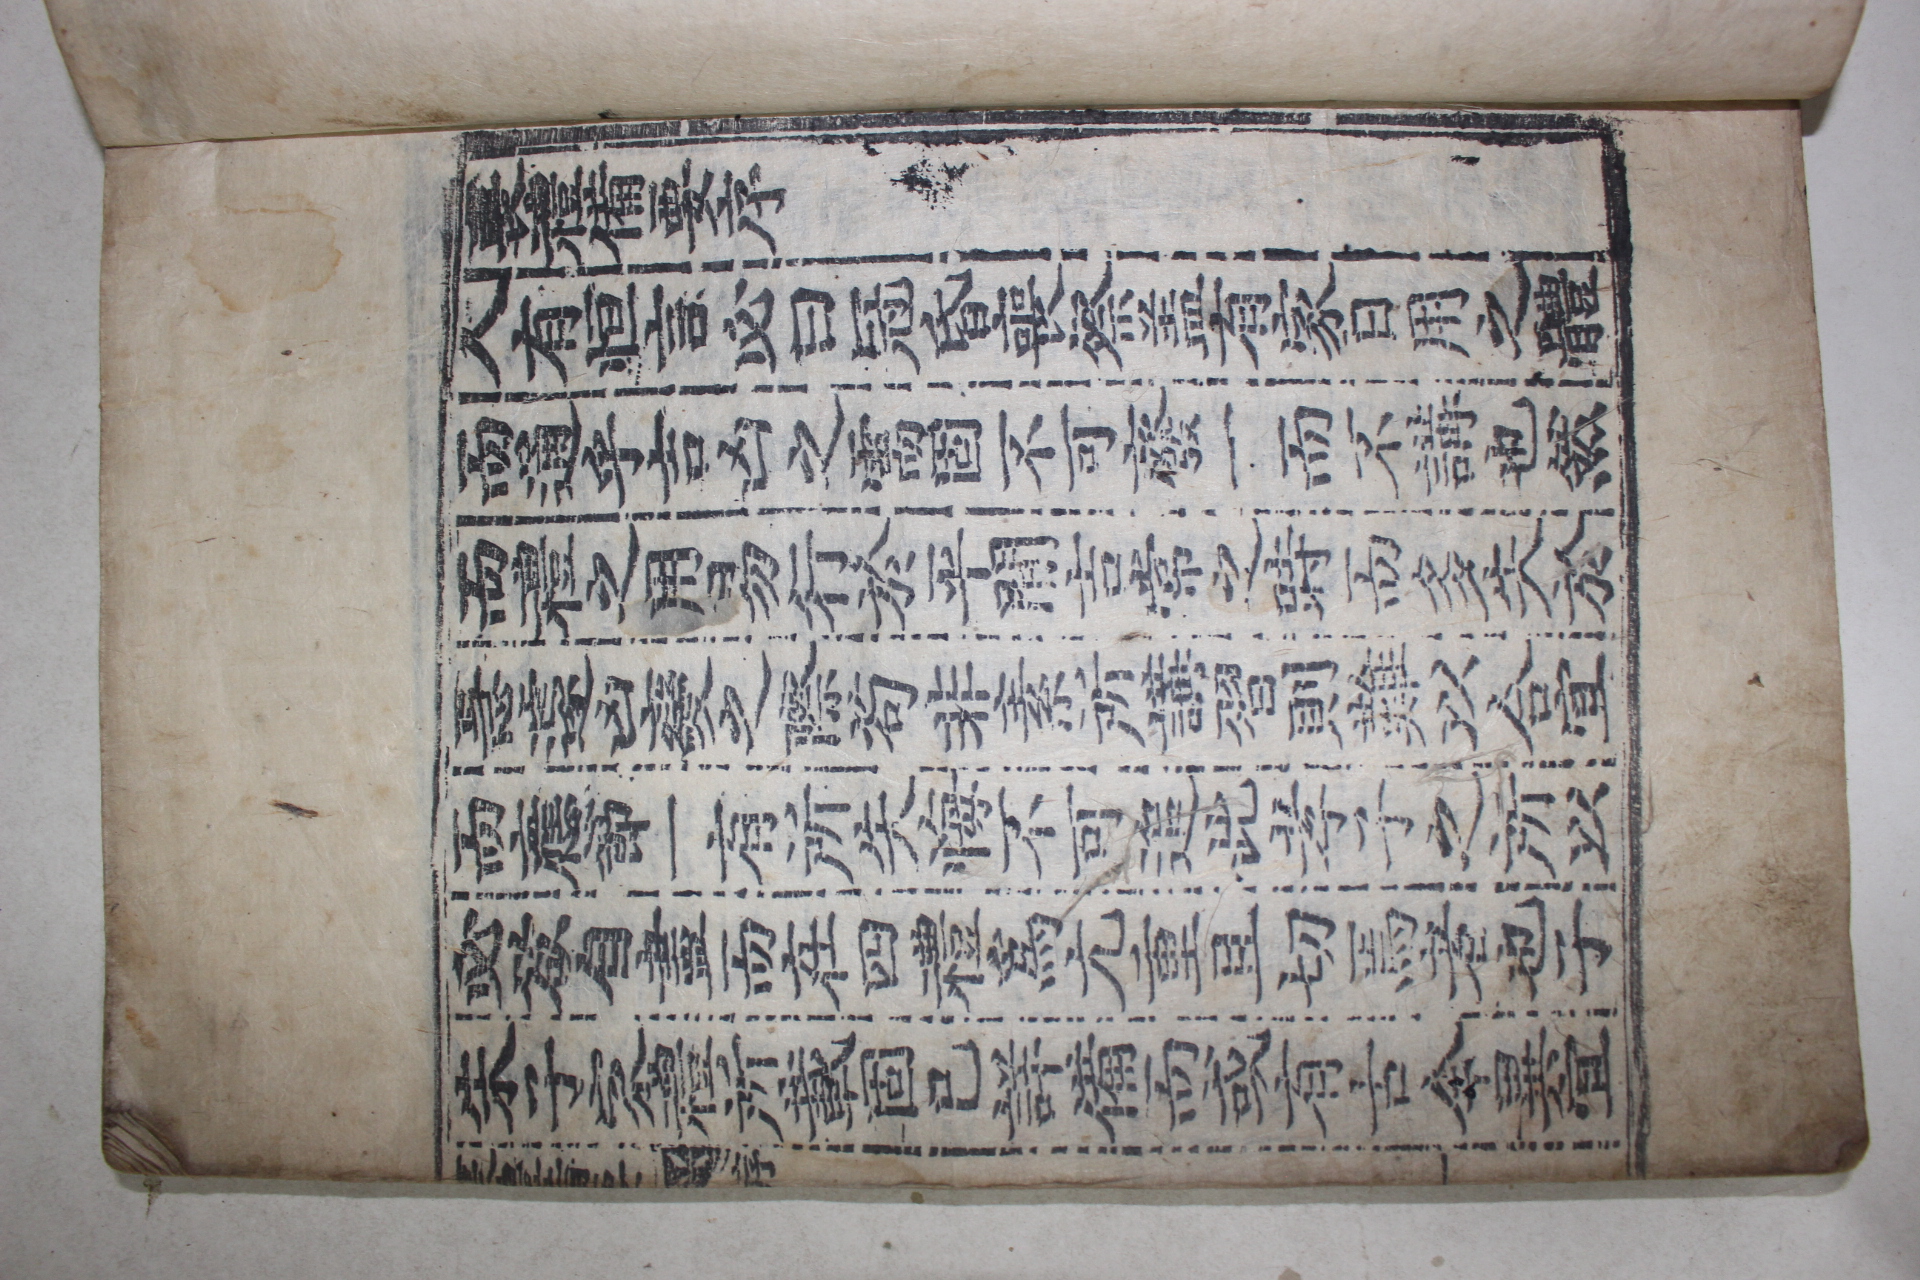 喪禮備要序
人有恒言必曰冠昏喪祭盖有家日用之體
而通乎吉凶之需固不可廢一而不講也然
而禮之用易行於平閒吉常之時而多失於
急遽凶變之際苟非素所講習則難以合宜
而應節一有所失悔不可追此孝子之所以
必欲自盡而在四禮爲尤重且切焉者也子
朱子家禮所載固已詳備而或有古今異宜
序